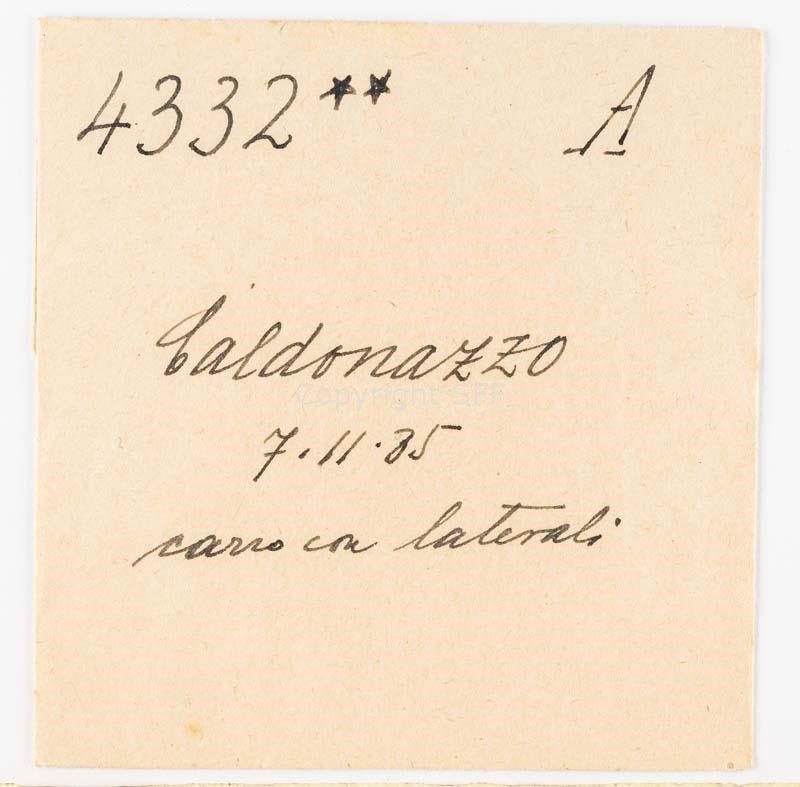 4332** A
Caldonazzo
Copyright SFF
7.11.35
carro con laterali